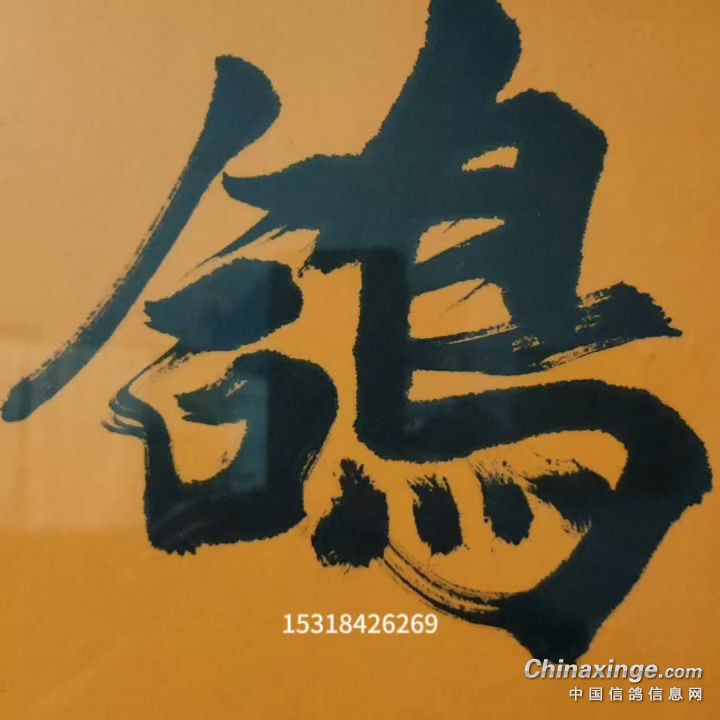 鸽
15318426269
Chinaxinge.com
中国信鸽信息网